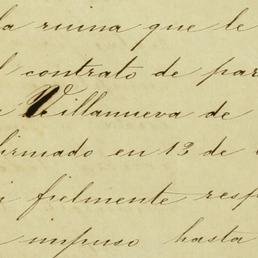 la ruina que le
contrato de par
Villanueva de
firmado en 13 de
fielmente resp
impuso hasta